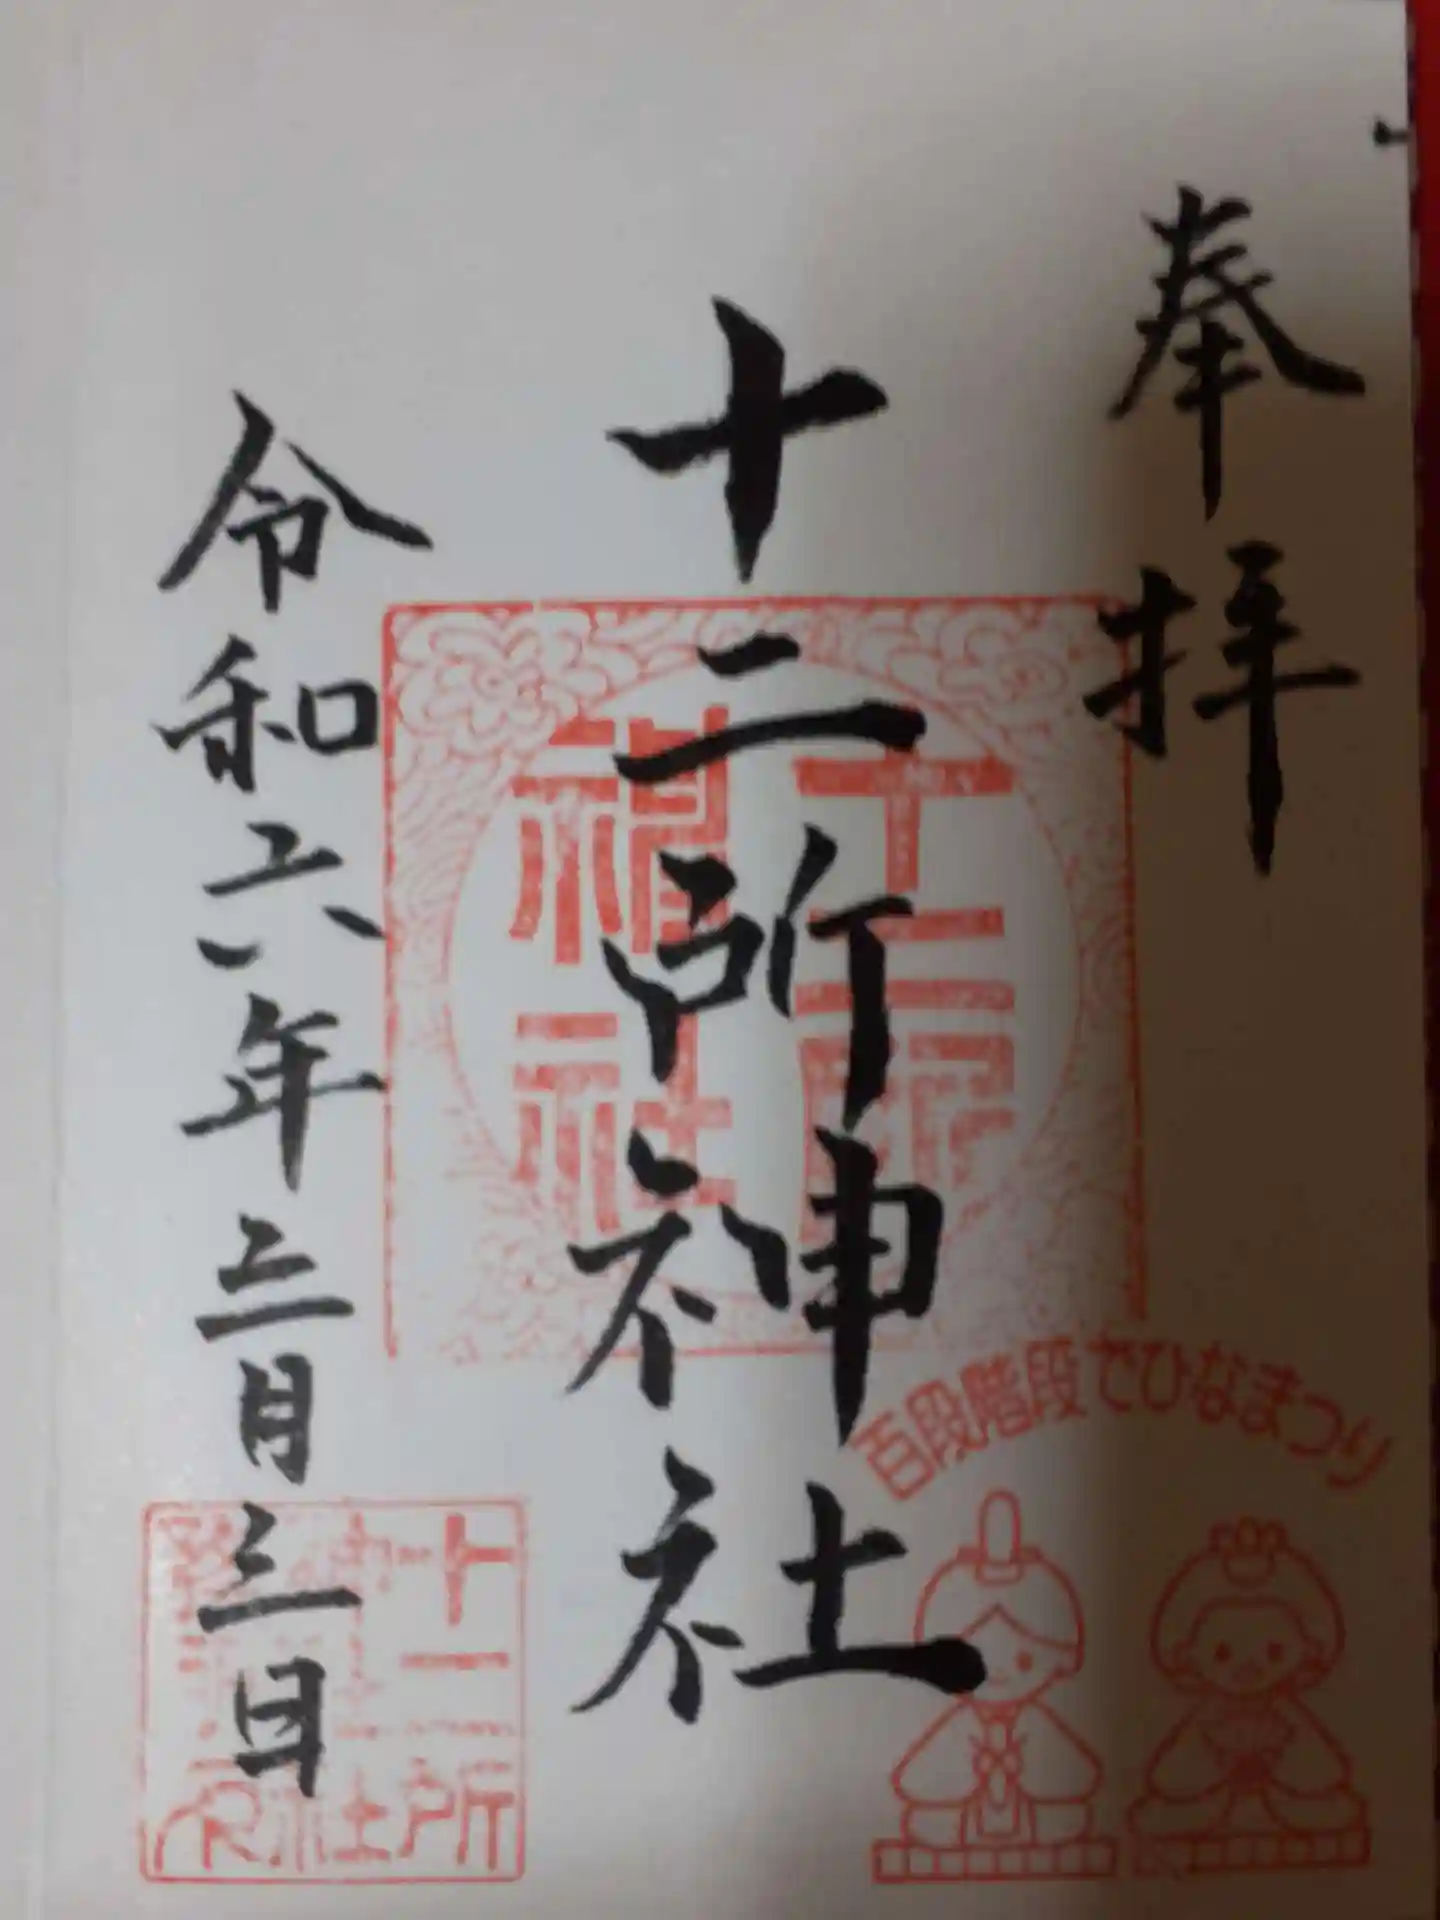 奉拝
十二所神社
令和六年三月三日
十二所
神社
百段階段でひなまつり
十二所